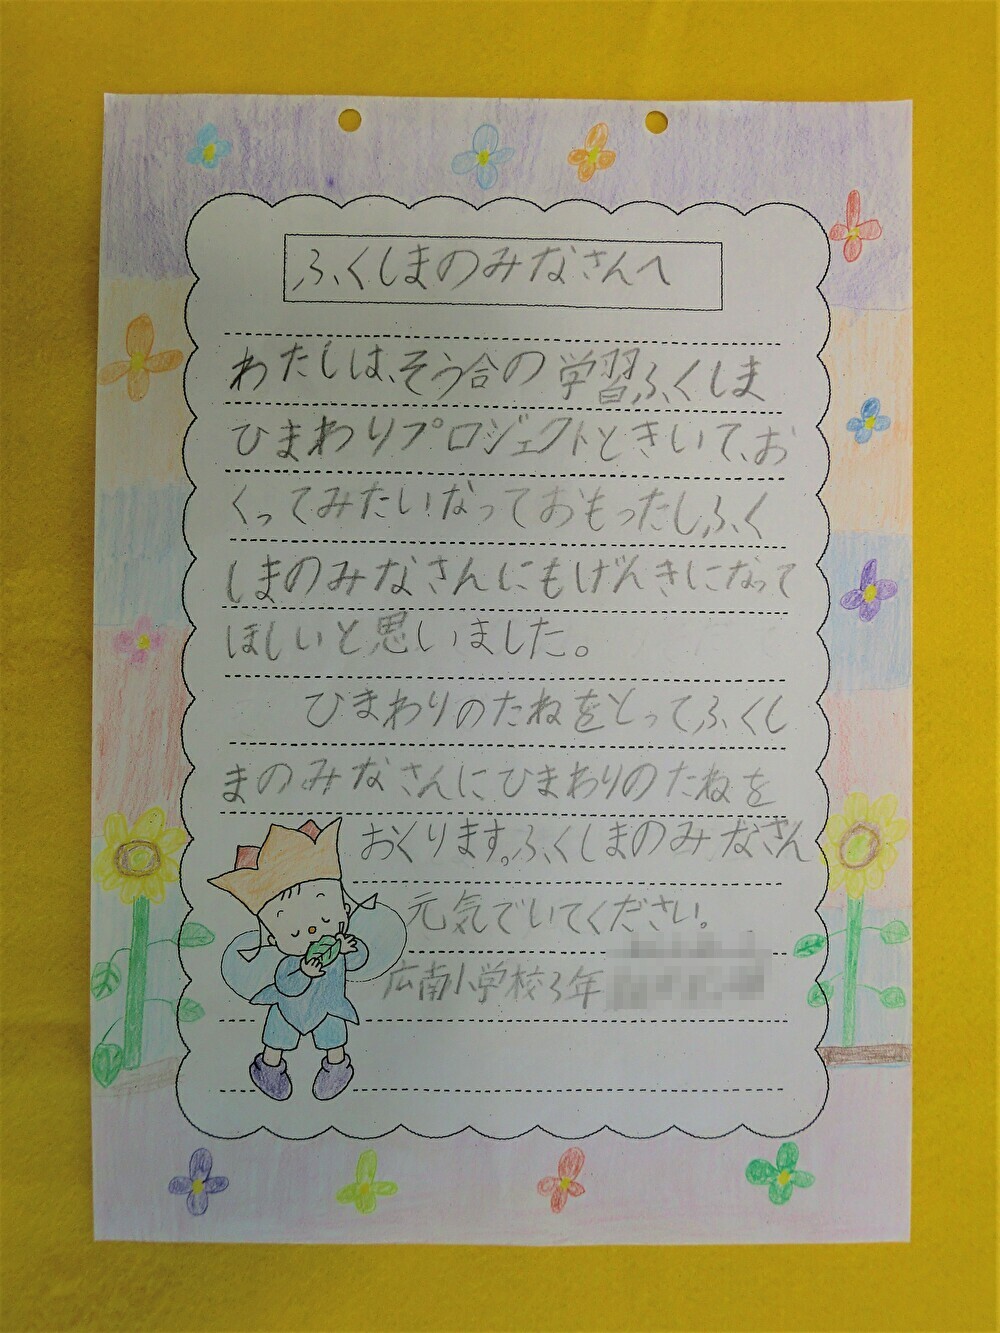 ふくしまのみなさんへ
わたしは、そう合の学習ふくしま
ひまわりプロジェクトときいて、お
くってみたいなっておもったしふく
しまのみなさんにもげんきになって
ほしいと思いました。
ひまわりのたねをとってふくし
まのみなさんにひまわりのたねを
おくります。ふくしまのみなさん
元気でいてください。
広南小学校3年